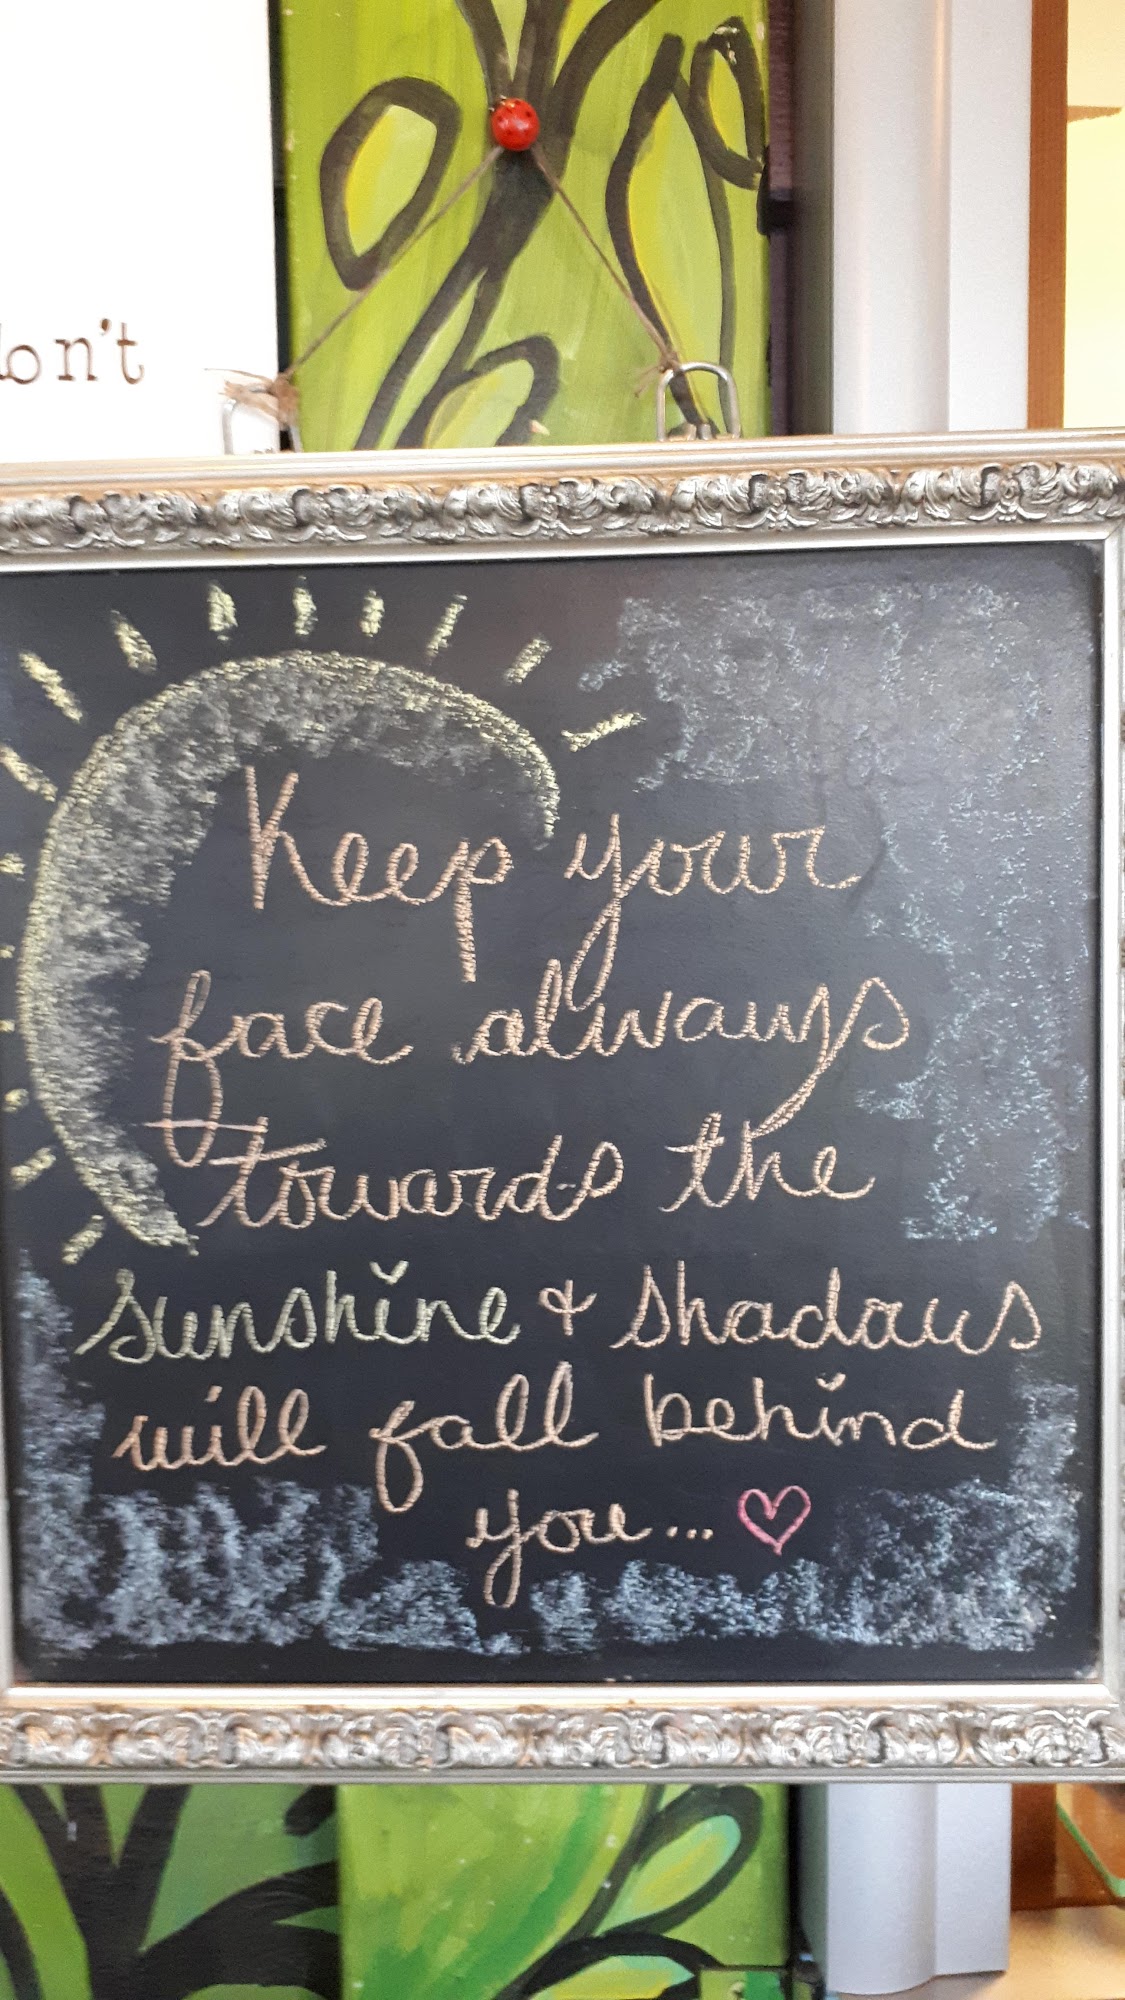 don't
Keep your
face always
towards the
sunshine & shadows
will fall behind
you...